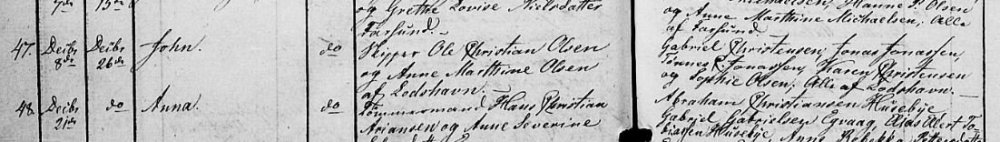 og Grethe Lovise Nielsdatter
Farsund.
47. Decbr 8de Decbr 26de John. do Skipper Ole Christian Olsen
og Anne Marthine Olsen
af Lodshavn.
48. Decbr 21de do Anna. do Tømmermand Hans Christian
Ariansen og Anne Severine
og Anne Marthine Michaelsen, Alle
af Farsund.
Gabriel Christensen, Jonas Jonassen,
Tønnes R. Jonassen, Karen Christensen
og Sophie Olsen, Alle af Lodshavn.
Abraham Christiansen Huseby
Gabriel Gabrielsen Eyvaag, Abert To-
biassen Huseby, Anne Rebekka